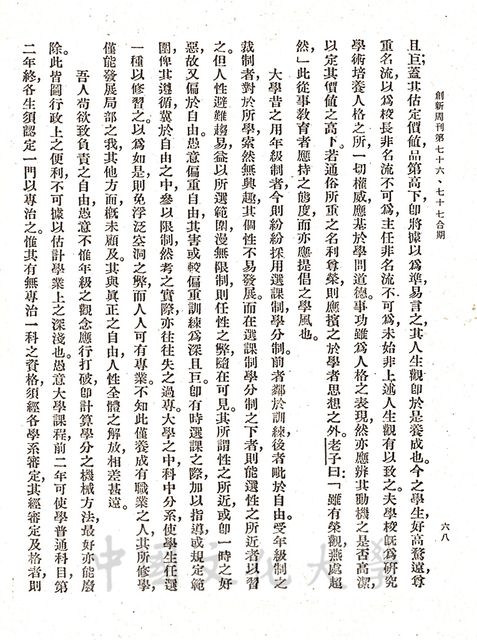 創新周刊第七十六、七十七合期
六八
且巨;蓋其估定價値品第高下卽將據以爲準易言之,其人生觀卽於是養成也。今之學生好高騖遠尊
重名流以爲校長非名流不可,爲主任非名流不可,爲未始非上述人生觀有以致之。夫學校旣爲研究
學術培養人格之所,一切權威應基於學問道德。事功雖爲人格之表現,然亦應辨其動機之是否高潔,
以定其價値之高下。若通俗所重之名利尊榮,則應擯之於學者思想之外。老子曰:「雖有榮觀,燕處超
然」此從事教育者應持之態度,而亦應提倡之學風也。
大學昔之用年級制者,今則紛紛採用選課制學分制。前者鄰於訓練後者毗於自由。受年級制之
裁制者,對於所學索然無興趣,其個性不易發展。而在選課制學分制之下者,則能選性之所近者以習
之。但人性避難趨易,益以所選範圍漫無限制,則任性之弊隨在可見。其所謂性之所近,或卽一時之好
惡,故又偏於自由。愚意偏重自由,其害或較偏重訓練爲深且巨。卽有時選課之際,加以指導或規定範
圍,俾其遵循,冀於自由之中,參以限制,然考之實際,亦往往失之過專。大學之中科中分系,使學生任選
一種以修習之。以爲如是則免浮泛空洞之弊,而人人可有專業。不知此僅養成有職業之人,其所修學,
僅能發展局部之我,其他方面槪未顧及。其與眞正之自由,人性全體之解放,相差甚遠。
吾人苟欲致負責之自由,愚意不惟年級之觀念應行打破,卽計算學分之機械方法,最好亦能廢
除。此皆圖行政上之便利,不可據以估計學業上之深淺也。愚意大學課程,前二年可使學普通科目,第
二年終各生須認定一門以專治之。惟其有無專治一科之資格,須經各學系審定,其經審定及格者,則
中國文化大學